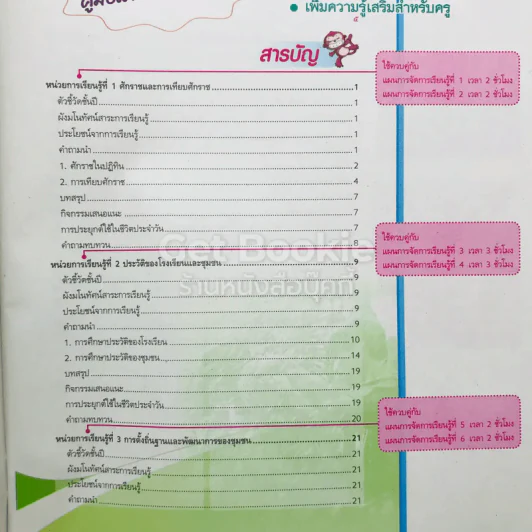 เพิ่มความรู้เสริมสำหรับครู
สารบัญ
ใช้ควบคู่กับ
แผนการจัดการเรียนรู้ที่ 1 เวลา 2 ชั่วโมง
แผนการจัดการเรียนรู้ที่ 2 เวลา 2 ชั่วโมง
หน่วยการเรียนรู้ที่ 1 ศักราชและการเทียบศักราช 1
ตัวชี้วัดชั้นปี 1
ผังมโนทัศน์สาระการเรียนรู้ 1
ประโยชน์จากการเรียนรู้ 1
คำถามนำ 1
1. ศักราชในปฏิทิน 2
2. การเทียบศักราช 4
บทสรุป 7
กิจกรรมเสนอแนะ 7
การประยุกต์ใช้ในชีวิตประจำวัน 7
คำถามทบทวน 8
ใช้ควบคู่กับ
แผนการจัดการเรียนรู้ที่ 3 เวลา 3 ชั่วโมง
แผนการจัดการเรียนรู้ที่ 4 เวลา 3 ชั่วโมง
หน่วยการเรียนรู้ที่ 2 ประวัติของโรงเรียนและชุมชน 9
ตัวชี้วัดชั้นปี 9
ผังมโนทัศน์สาระการเรียนรู้ 9
ประโยชน์จากการเรียนรู้ 9
คำถามนำ 9
1. การศึกษาประวัติของโรงเรียน 10
2. การศึกษาประวัติของชุมชน 14
บทสรุป 19
กิจกรรมเสนอแนะ 19
การประยุกต์ใช้ในชีวิตประจำวัน 19
คำถามทบทวน 20
ใช้ควบคู่กับ
แผนการจัดการเรียนรู้ที่ 5 เวลา 2 ชั่วโมง
แผนการจัดการเรียนรู้ที่ 6 เวลา 2 ชั่วโมง
หน่วยการเรียนรู้ที่ 3 การตั้งถิ่นฐานและพัฒนาการของชุมชน 21
ตัวชี้วัดชั้นปี 21
ผังมโนทัศน์สาระการเรียนรู้ 21
ประโยชน์จากการเรียนรู้ 21
คำถามนำ 21
Get Bookie
ร้านหนังสือบุ๊คกี้